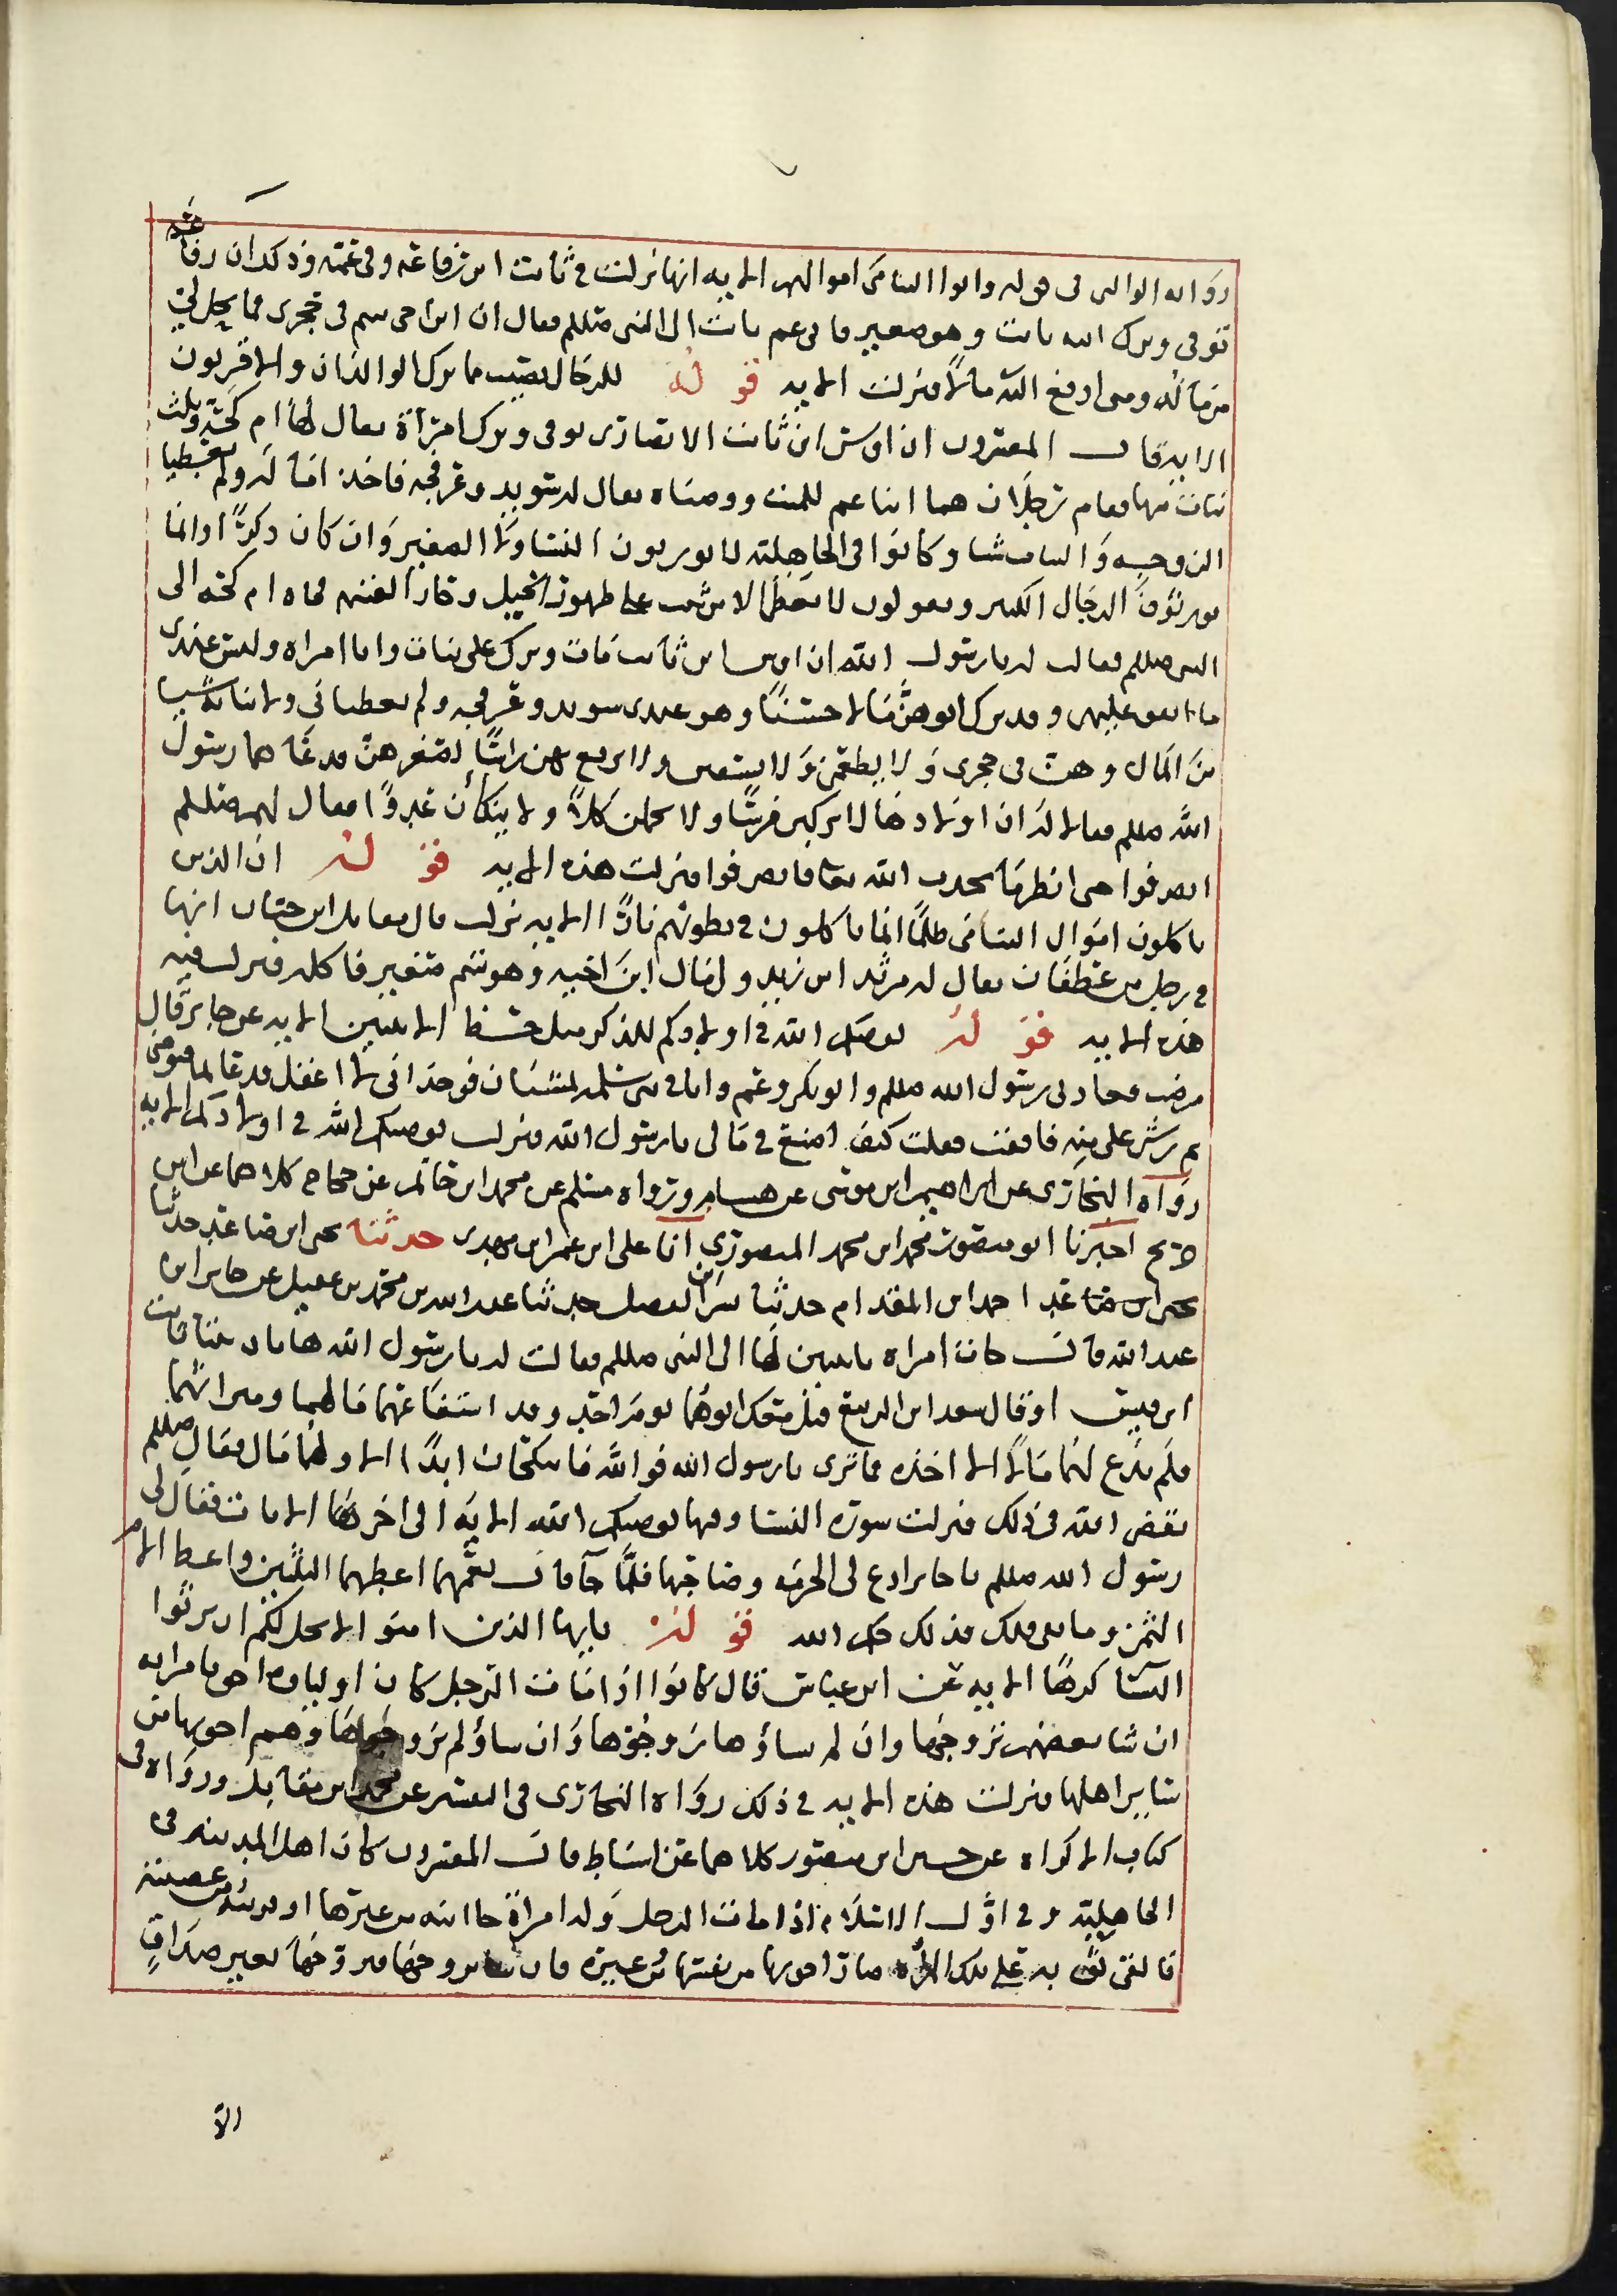 رواية الوالبي في قوله وابتلوا اليتامى اموالهم الاية انها نزلت في ثابت ابن رفاعة وفي عمه وذلك ان رفاعة
توفى وترك ابنه ثابت وهو صغير فاتى عم ثابت الى النبي صللم فقال ان ابن اخي يتيم في حجري فما يحل لي
من ماله ومتى ادفع اليه ماله فنزلت الاية قوله للرجال نصيب مما ترك الوالدان والاقربون
الاية قال المفسرون ان اوس ابن ثابت الانصاري توفى وترك امراة يقال لها ام كحة وثلث
بنات منها فقام رجلان هما ابنا عم للميت ووصياه يقال له سويد وعرفجه فاخذا ماله ولم يعطيا
الزوجه والبنات شيا وكانوا في الجاهلية لا يورثون النسا ولا الصغير وان كان ذكرًا وانما
يورثون الرجال الكبير ويقولون لا يعطى الا من على ظهور الخيل وحاز الغنيمه فجاه ام كحه الى
النبي صللم فقالت له يا رسول الله ان اوس ابن ثابت مات وترك على بنات وانا امراه وليس عندي
ما انفق عليهن وقد ترك ابوهن مالا حسنًا وهو عندي سويد وعرفجه ولم يعطياني ولا بناته شيا
من المال وهن في حجري ولا يطعمن ولا يسقين ولا يرفع لهن راسًا لصغرهن فدعاهما رسول
الله صللم فقالا له ان اولادها لا يركبن فرسًا ولا يحملن كلاً ولا ينكأن عدوًا فقال لهم صللم
انصرفوا حتى انظر ما يحدث الله تعا فانصرفوا فنزلت هذه الاية قوله ان الذين
ياكلون اموال اليتامى ظلمًا انما ياكلون في بطونهم نارًا الاية نزلت قال مقاتل ابن حيان انها
في رجل من غطفان يقال له مرثد ابن زيد ولي مال ابن اخيه وهو يتيم صغير فاكله فنزلت فيه
هذه الاية قوله يوصيكم الله في اولادكم للذكر مثل حظ الانثيين الاية عن جابر قال
مرضت فعادني رسول الله صللم وابو بكر وعمر وانا في بني سلمه يمشيان فوجداني لا اعقل فدعا بما فتوضى
ثم رش علي منه فافقت فقلت كيف اصنع في مالي يا رسول الله فنزلت يوصيكم الله في اولادكم الاية
رواه البخاري عن ابراهيم ابن موسى عن هشام ورواه مسلم عن محمد ابن حاتم عن حجاج كلاهما عن ابن
جريج اخبرنا ابو منصور محمد ابن محمد المنصوري انا علي ابن عمر ابن مهدي حدثنا يحى ابن صاعد حدثنا
احمد ابن المقدام حدثنا بشر ابن الفضل حدثنا عبد الله بن محمد بن عقيل عن جابر ابن
عبد الله قال جات امراه بابنتين لها الى النبي صللم فقالت له يا رسول الله هاتان بنتا ثابت
ابن قيس اوقال سعد ابن الربيع قتل معك ابوهما يوم احد وقد استفا عمهما مالهما وميراثهما
فلم يدع لهما مالاً الا اخذه فما ترى يا رسول الله فوالله ما ينكحان ابدًا الا ولهما مال فقال صللم
يقضي الله في ذلك فنزلت سورة النسا وفيها يوصيكم الله الاية الى اخرها الايات فقال لي
رسول الله صللم يا جابر ادع لي المرة وصاحبها فلما جآ قال لعمهما اعطهما الثلثين واعط الام
الثمن وما بقى فلك فذلك حكم الله قوله يايها الذين امنوا لا يحل لكم ان ترثوا
النسا كرهًا الاية عن ابن عباس قال كانوا اذا مات الرجل كان اولياوه احق بامراته
ان شا بعضهم تزوجها وان لم شاؤها زوجوها وان شاؤ لم تزوجوها وهم احق بها من
ساير اهلها فنزلت هذه الاية في ذلك رواه البخاري في التفسير عن محمد ابن مقاتل ورواه في
كتاب الاكراه عن حسين ابن منصور كلاهما عن اسباط قال المفسرون كان اهل المدينه في
الجاهلية وفي اول الاسلام اذا مات الرجل وله امراة جا ابنه من غيرها او قريبه من عصبته
فالقى ثوبه على تلك المراه صار احق بها من نفسها من غيره فان شا تزوجها فتزوجها بغير صداق
الا